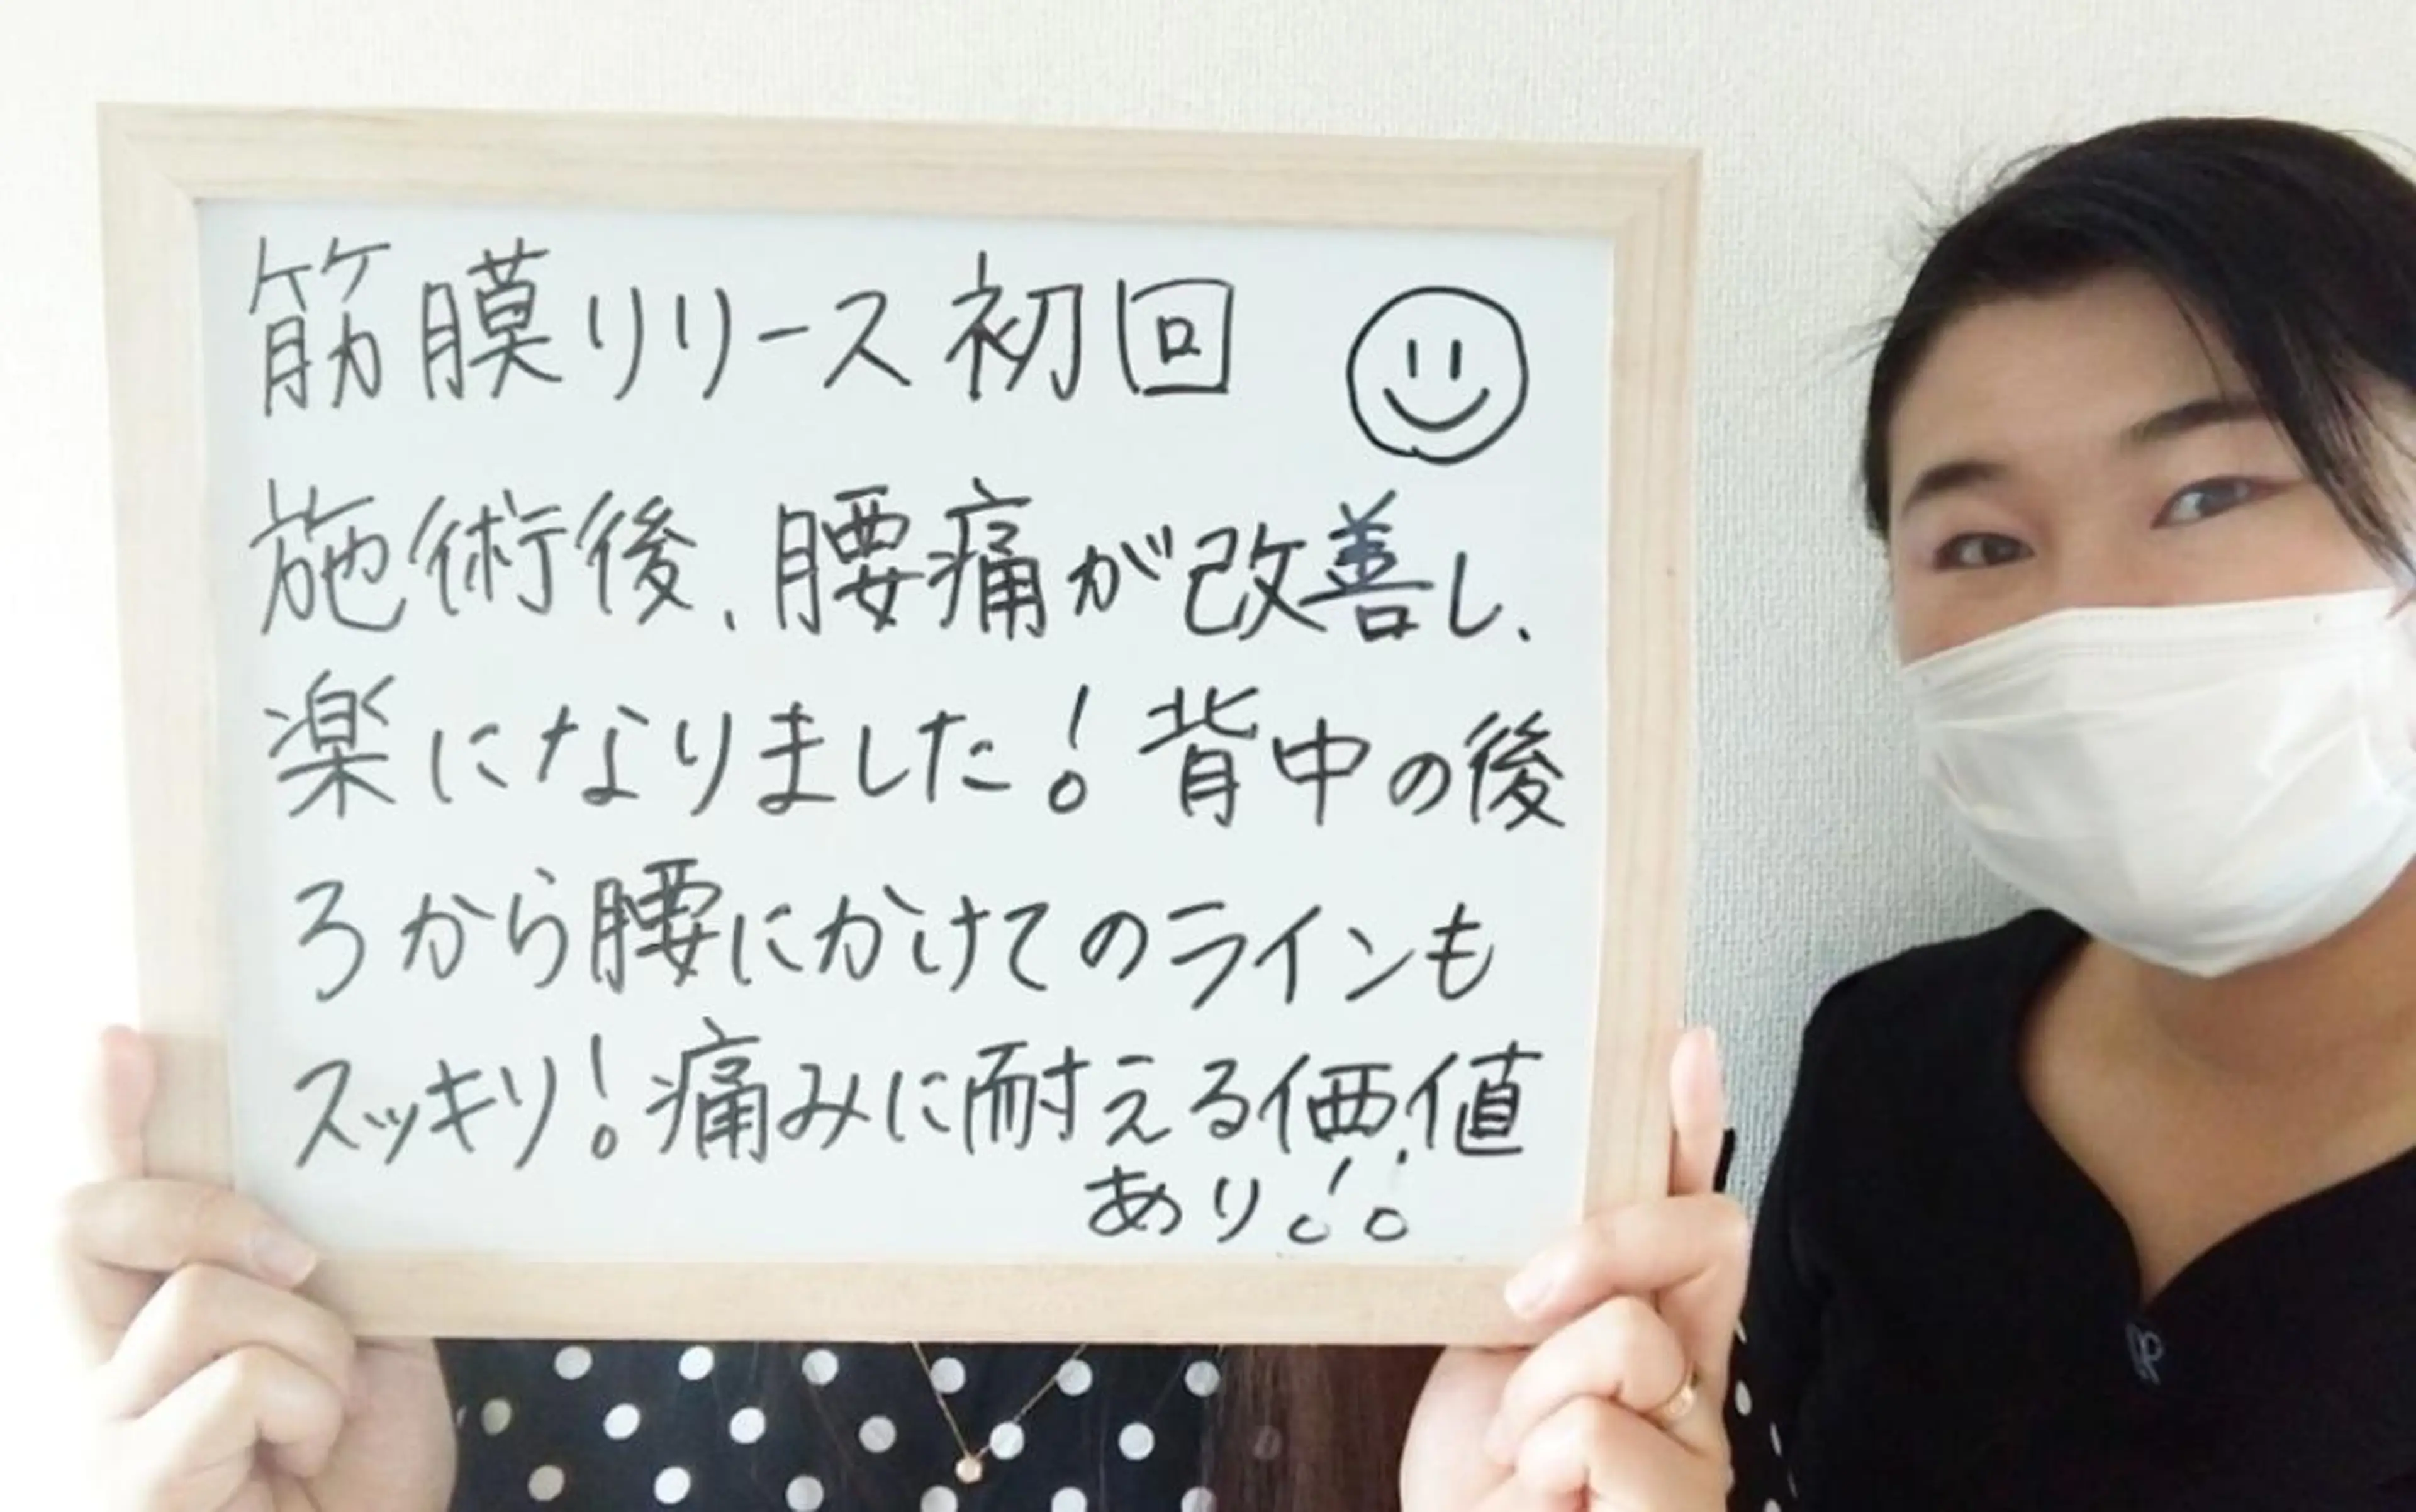 筋膜リリース初回
施術後、腰痛が改善し、
楽になりました！背中の後
ろから腰にかけてのラインも
スッキリ！痛みに耐える価値
あり！！